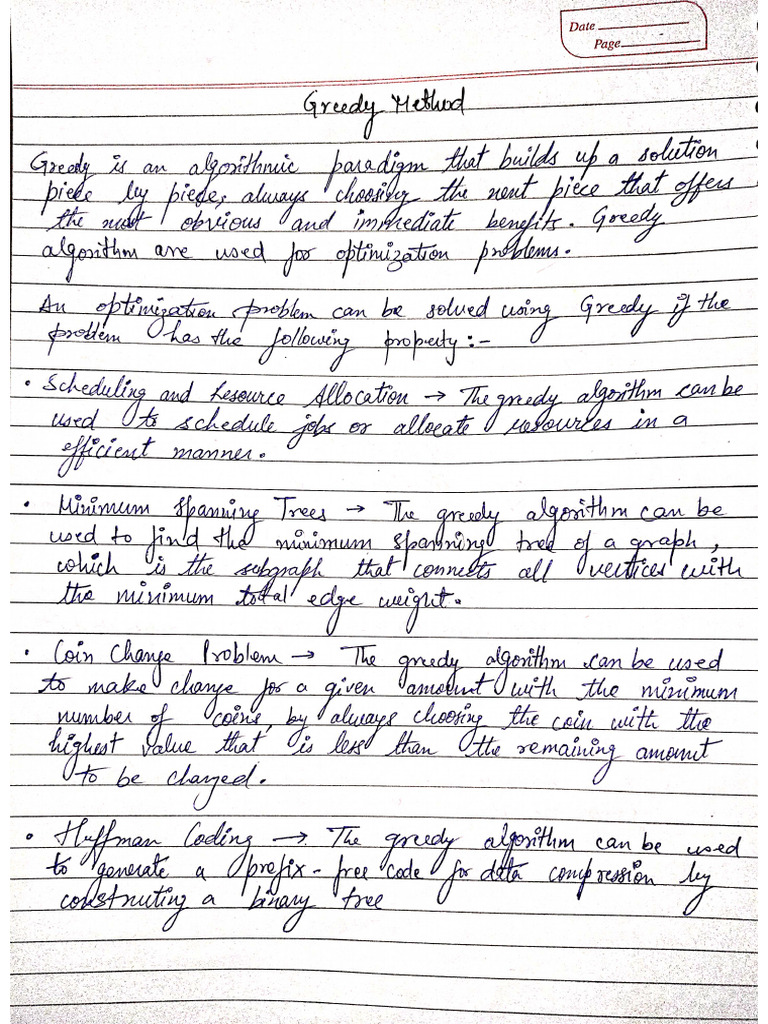 Date
Page
Greedy Method
Greedy is an algorithmic paradigm that builds up a solution
piece by piece, always choosing the next piece that offers
the most obvious and immediate benefits. Greedy
algorithm are used for optimization problems.
An optimization problem can be solved using Greedy if the
problem has the following property:-
• Scheduling and Resource Allocation → The greedy algorithm can be
used to schedule jobs or allocate resources in a
efficient manner.
• Minimum Spanning Trees → The greedy algorithm can be
used to find the minimum spanning tree of a graph,
which is the subgraph that connects all vertices with
the minimum total edge weight.
• Coin Change Problem → The greedy algorithm can be used
to make change for a given amount with the minimum
number of coins, by always choosing the coin with the
highest value that is less than the remaining amount
to be changed.
• Huffman Coding → The greedy algorithm can be used
to generate a prefix-free code for data compression by
constructing a binary tree